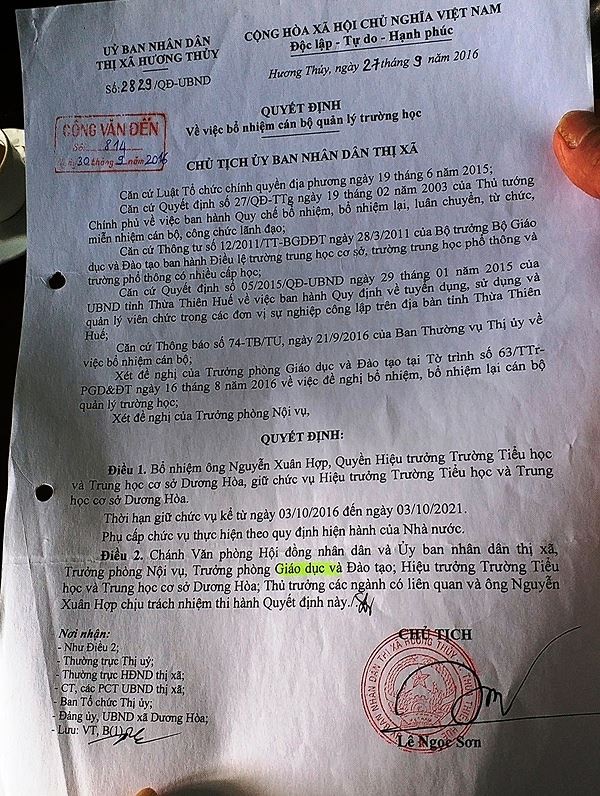 ỦY BAN NHÂN DÂN
THỊ XÃ HƯƠNG THỦY
Số: 2829/QĐ-UBND
CỘNG HÒA XÃ HỘI CHỦ NGHĨA VIỆT NAM
Độc lập - Tự do - Hạnh phúc
Hương Thủy, ngày 27 tháng 9 năm 2016
CÔNG VĂN ĐẾN
Số: 814
Ngày 30 tháng 9 năm 2016
QUYẾT ĐỊNH
Về việc bổ nhiệm cán bộ quản lý trường học
CHỦ TỊCH ỦY BAN NHÂN DÂN THỊ XÃ
Căn cứ Luật Tổ chức chính quyền địa phương ngày 19 tháng 6 năm 2015;
Căn cứ Quyết định số 27/QĐ-TTg ngày 19 tháng 02 năm 2003 của Thủ tướng
Chính phủ về việc ban hành Quy chế bổ nhiệm, bổ nhiệm lại, luân chuyển, từ chức,
miễn nhiệm cán bộ, công chức lãnh đạo;
Căn cứ Thông tư số 12/2011/TT-BGDĐT ngày 28/3/2011 của Bộ trưởng Bộ Giáo
dục và Đào tạo ban hành Điều lệ trường trung học cơ sở, trường trung học phổ thông và
trường phổ thông có nhiều cấp học;
Căn cứ Quyết định số 05/2015/QĐ-UBND ngày 29 tháng 01 năm 2015 của
UBND tỉnh Thừa Thiên Huế về việc ban hành Quy định về tuyển dụng, sử dụng và
quản lý viên chức trong các đơn vị sự nghiệp công lập trên địa bàn tỉnh Thừa Thiên
Huế;
Căn cứ Thông báo số 74-TB/TU, ngày 21/9/2016 của Ban Thường vụ Thị ủy về
việc bổ nhiệm cán bộ;
Xét đề nghị của Trưởng phòng Giáo dục và Đào tạo tại Tờ trình số 63/TTr-
PGD&ĐT ngày 16 tháng 8 năm 2016 về việc đề nghị bổ nhiệm, bổ nhiệm lại cán bộ
quản lý trường học;
Xét đề nghị của Trưởng phòng Nội vụ,
QUYẾT ĐỊNH:
Điều 1. Bổ nhiệm ông Nguyễn Xuân Hợp, Quyền Hiệu trưởng Trường Tiểu học
và Trung học cơ sở Dương Hòa, giữ chức vụ Hiệu trưởng Trường Tiểu học và Trung
học cơ sở Dương Hòa.
Thời hạn giữ chức vụ kể từ ngày 03/10/2016 đến ngày 03/10/2021.
Phụ cấp chức vụ thực hiện theo quy định hiện hành của Nhà nước.
Điều 2. Chánh Văn phòng Hội đồng nhân dân và Ủy ban nhân dân thị xã,
Trưởng phòng Nội vụ, Trưởng phòng Giáo dục và Đào tạo; Hiệu trưởng Trường Tiểu
học và Trung học cơ sở Dương Hòa; Thủ trưởng các ngành có liên quan và ông Nguyễn
Xuân Hợp chịu trách nhiệm thi hành Quyết định này./.
Nơi nhận:
- Như Điều 2;
- Thường trực Thị uỷ;
- Thường trực HĐND thị xã;
- CT, các PCT UBND thị xã;
- Ban Tổ chức Thị ủy;
- Đảng ủy, UBND xã Dương Hòa;
- Lưu: VT, B(1).
CHỦ TỊCH
Lê Ngọc Sơn